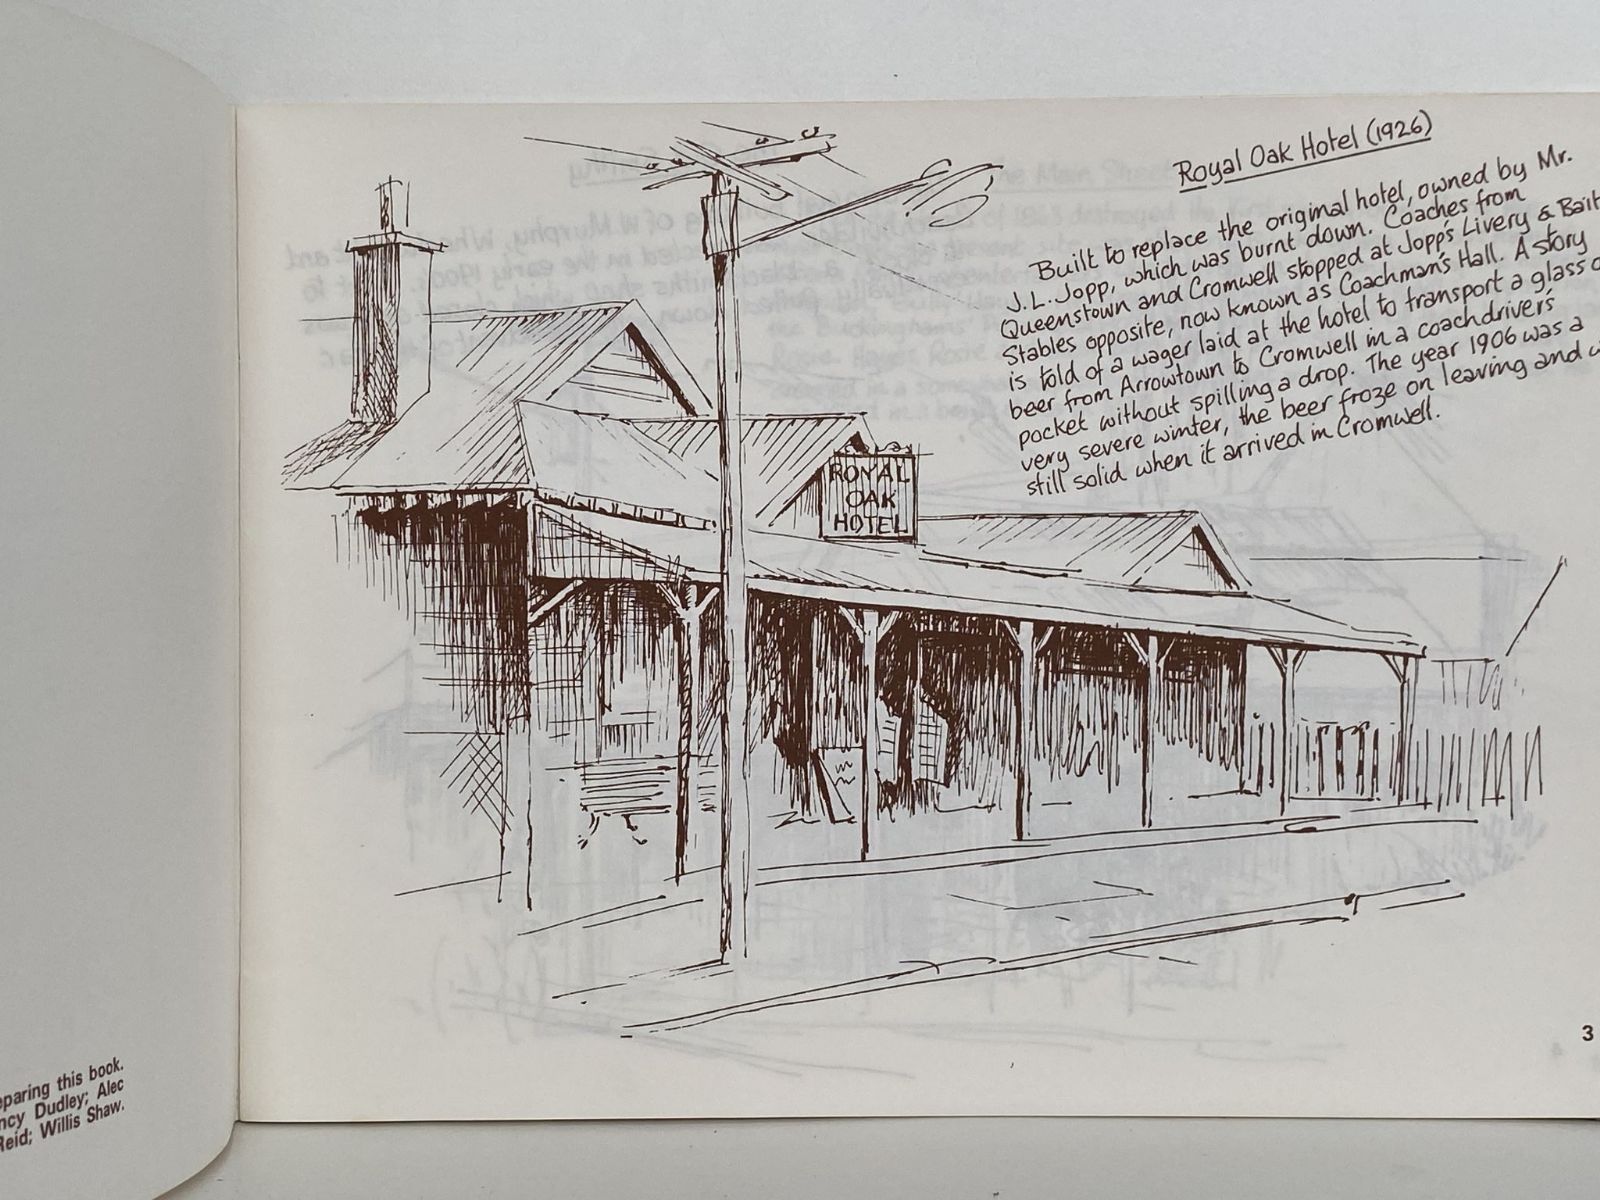 Royal Oak Hotel (1926)
Built to replace the original hotel, owned by Mr.
J.L. Jopp, which was burnt down. Coaches from
Queenstown and Cromwell stopped at Jopp's Livery & Bait
Stables opposite, now known as Coachman's Hall. A story
is told of a wager laid at the hotel to transport a glass
beer from Arrowtown to Cromwell in a coachdriver's
pocket without spilling a drop. The year 1906 was a
very severe winter, the beer froze on leaving and
still solid when it arrived in Cromwell.
ROYAL
OAK
HOTEL
3
this book.
Dudley; Alec
Reid; Willis Shaw.